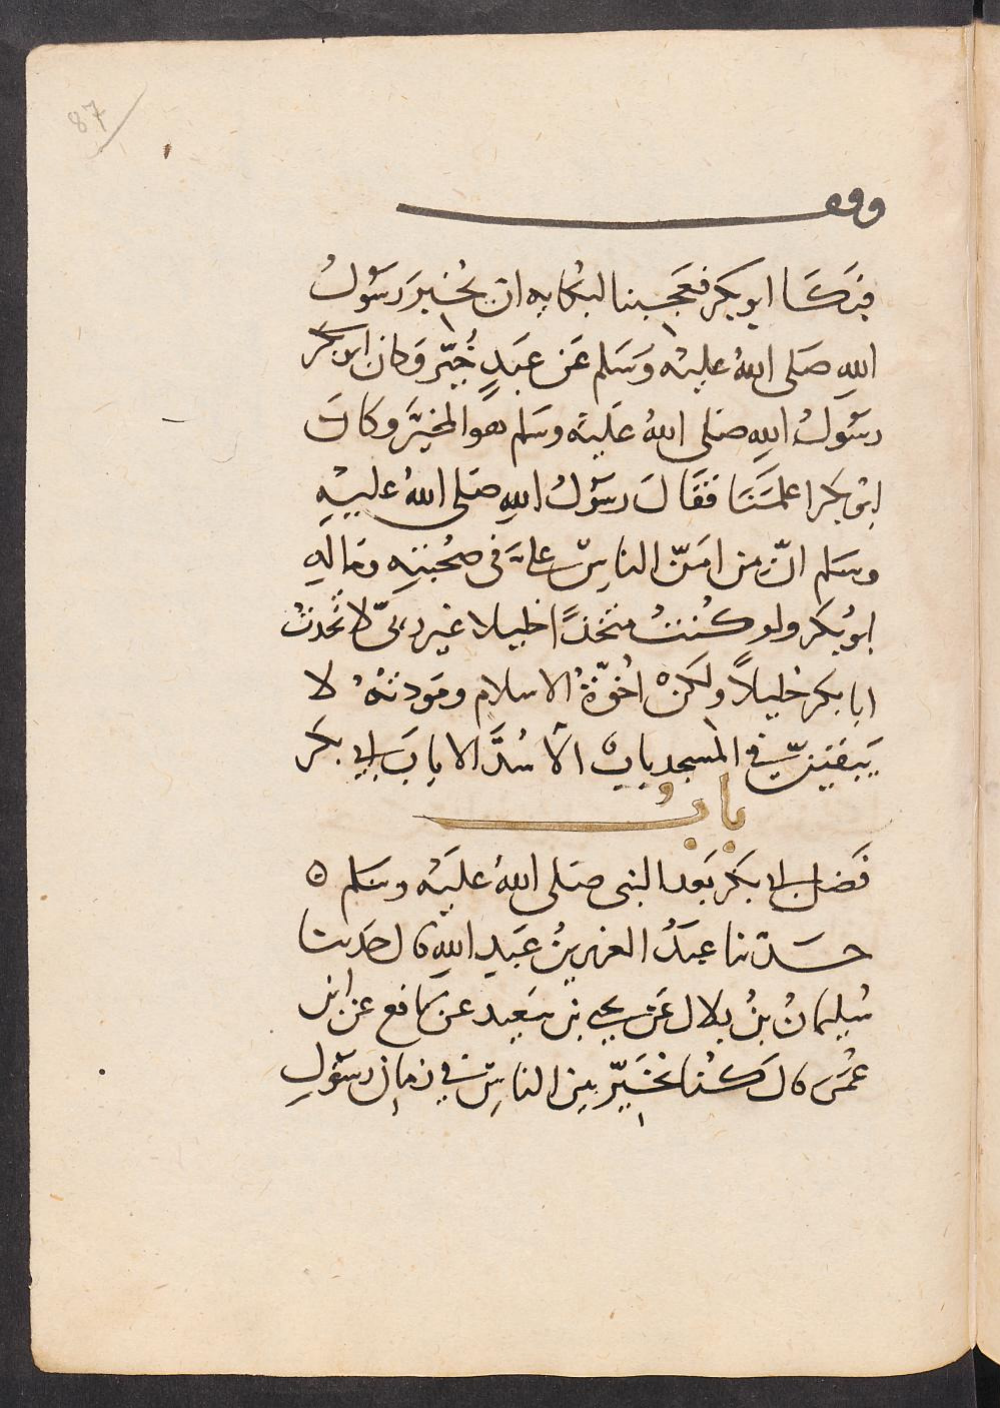 87
وقف
فبكا ابو بكر فعجبنا لبكايه ان يخبر رسول
الله صلى الله عليه وسلم عن عبد خير وكان ابن بكر
رسول الله صلى الله عليه وسلم هو المخير وكان
ابو بكر اعلمنا فقال رسول الله صلى الله عليه
وسلم ان من امن الناس على فى صحبته وماله
ابو بكر ولو كنت متخذا خليلا غير ربى لاتخذت
ابا بكر خليلا ولكن اخوة الاسلام ومودته لا
يبقين فى المسجد باب الا سد الا باب ابى بكر
باب
فضل ابى بكر بعد النبى صلى الله عليه وسلم ه
حدثنا عبد العزيز بن عبد الله قال حدثنا
سليمان بن بلال عن يحيى بن سعيد عن نافع عن ابن
عمر قال كنا نخير بين الناس فى زمان رسول